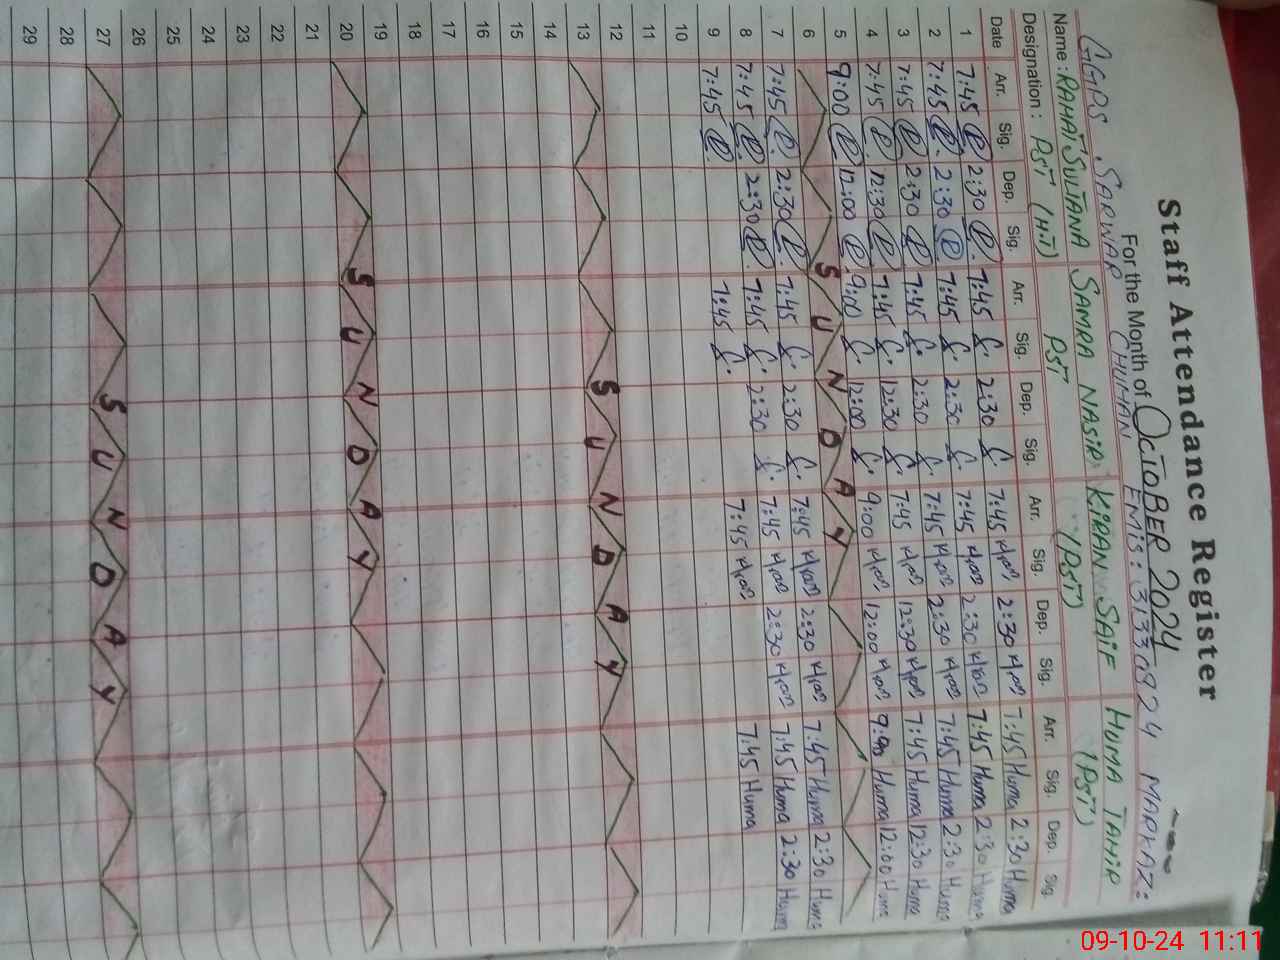 Staff Attendance Register
For the Month of OCTOBER 2024
GGPS SARWAR CHUHAN EMIS: 31330924 MARKAZ:
Name : RAHAT SULTANA SAMRA NASIR KIRAN SAIF HUMA TAHIR
Designation : PST (H.T) PST (PST) (PST)
Date Arr. Sig. Dep. Sig. Arr. Sig. Dep. Sig. Arr. Sig. Dep. Sig. Arr. Sig. Dep. Sig.
1 7:45 2:30 7:45 2:30 7:45 Kiran 2:30 Kiran 7:45 Huma 2:30 Huma
2 7:45 2:30 7:45 2:30 7:45 Kiran 2:30 Kiran 7:45 Huma 2:30 Huma
3 7:45 2:30 7:45 2:30 7:45 Kiran 2:30 Kiran 7:45 Huma 2:30 Huma
4 7:45 12:30 7:45 12:30 7:45 Kiran 12:30 Kiran 7:45 Huma 12:30 Huma
5 9:00 12:00 9:00 12:00 9:00 Kiran 12:00 Kiran 9:00 Huma 12:00 Huma
6 SUNDAY
7 7:45 2:30 7:45 2:30 7:45 Kiran 2:30 Kiran 7:45 Huma 2:30 Huma
8 7:45 2:30 7:45 2:30 7:45 Kiran 2:30 Kiran 7:45 Huma 2:30 Huma
9 7:45 7:45 7:45 Kiran 7:45 Huma
10
11
12
13 SUNDAY
14
15
16
17
18
19
20 SUNDAY
21
22
23
24
25
26
27 SUNDAY
28
29
09-10-24 11:11